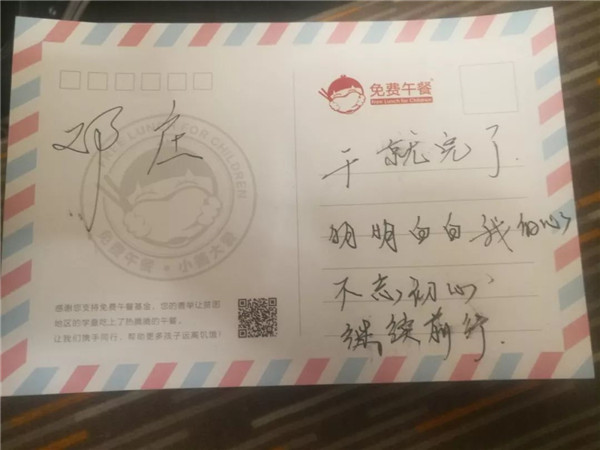 免费午餐
Free Lunch for Children
邓庄
FREE LUNCH FOR CHILDREN
免费午餐·小善大爱
干就完了.
明明白白我的心
不忘初心
继续前行.
感谢您支持免费午餐基金，您的善举让贫困
地区的学童吃上了热腾腾的午餐。
让我们携手同行，帮助更多孩子远离饥饿！